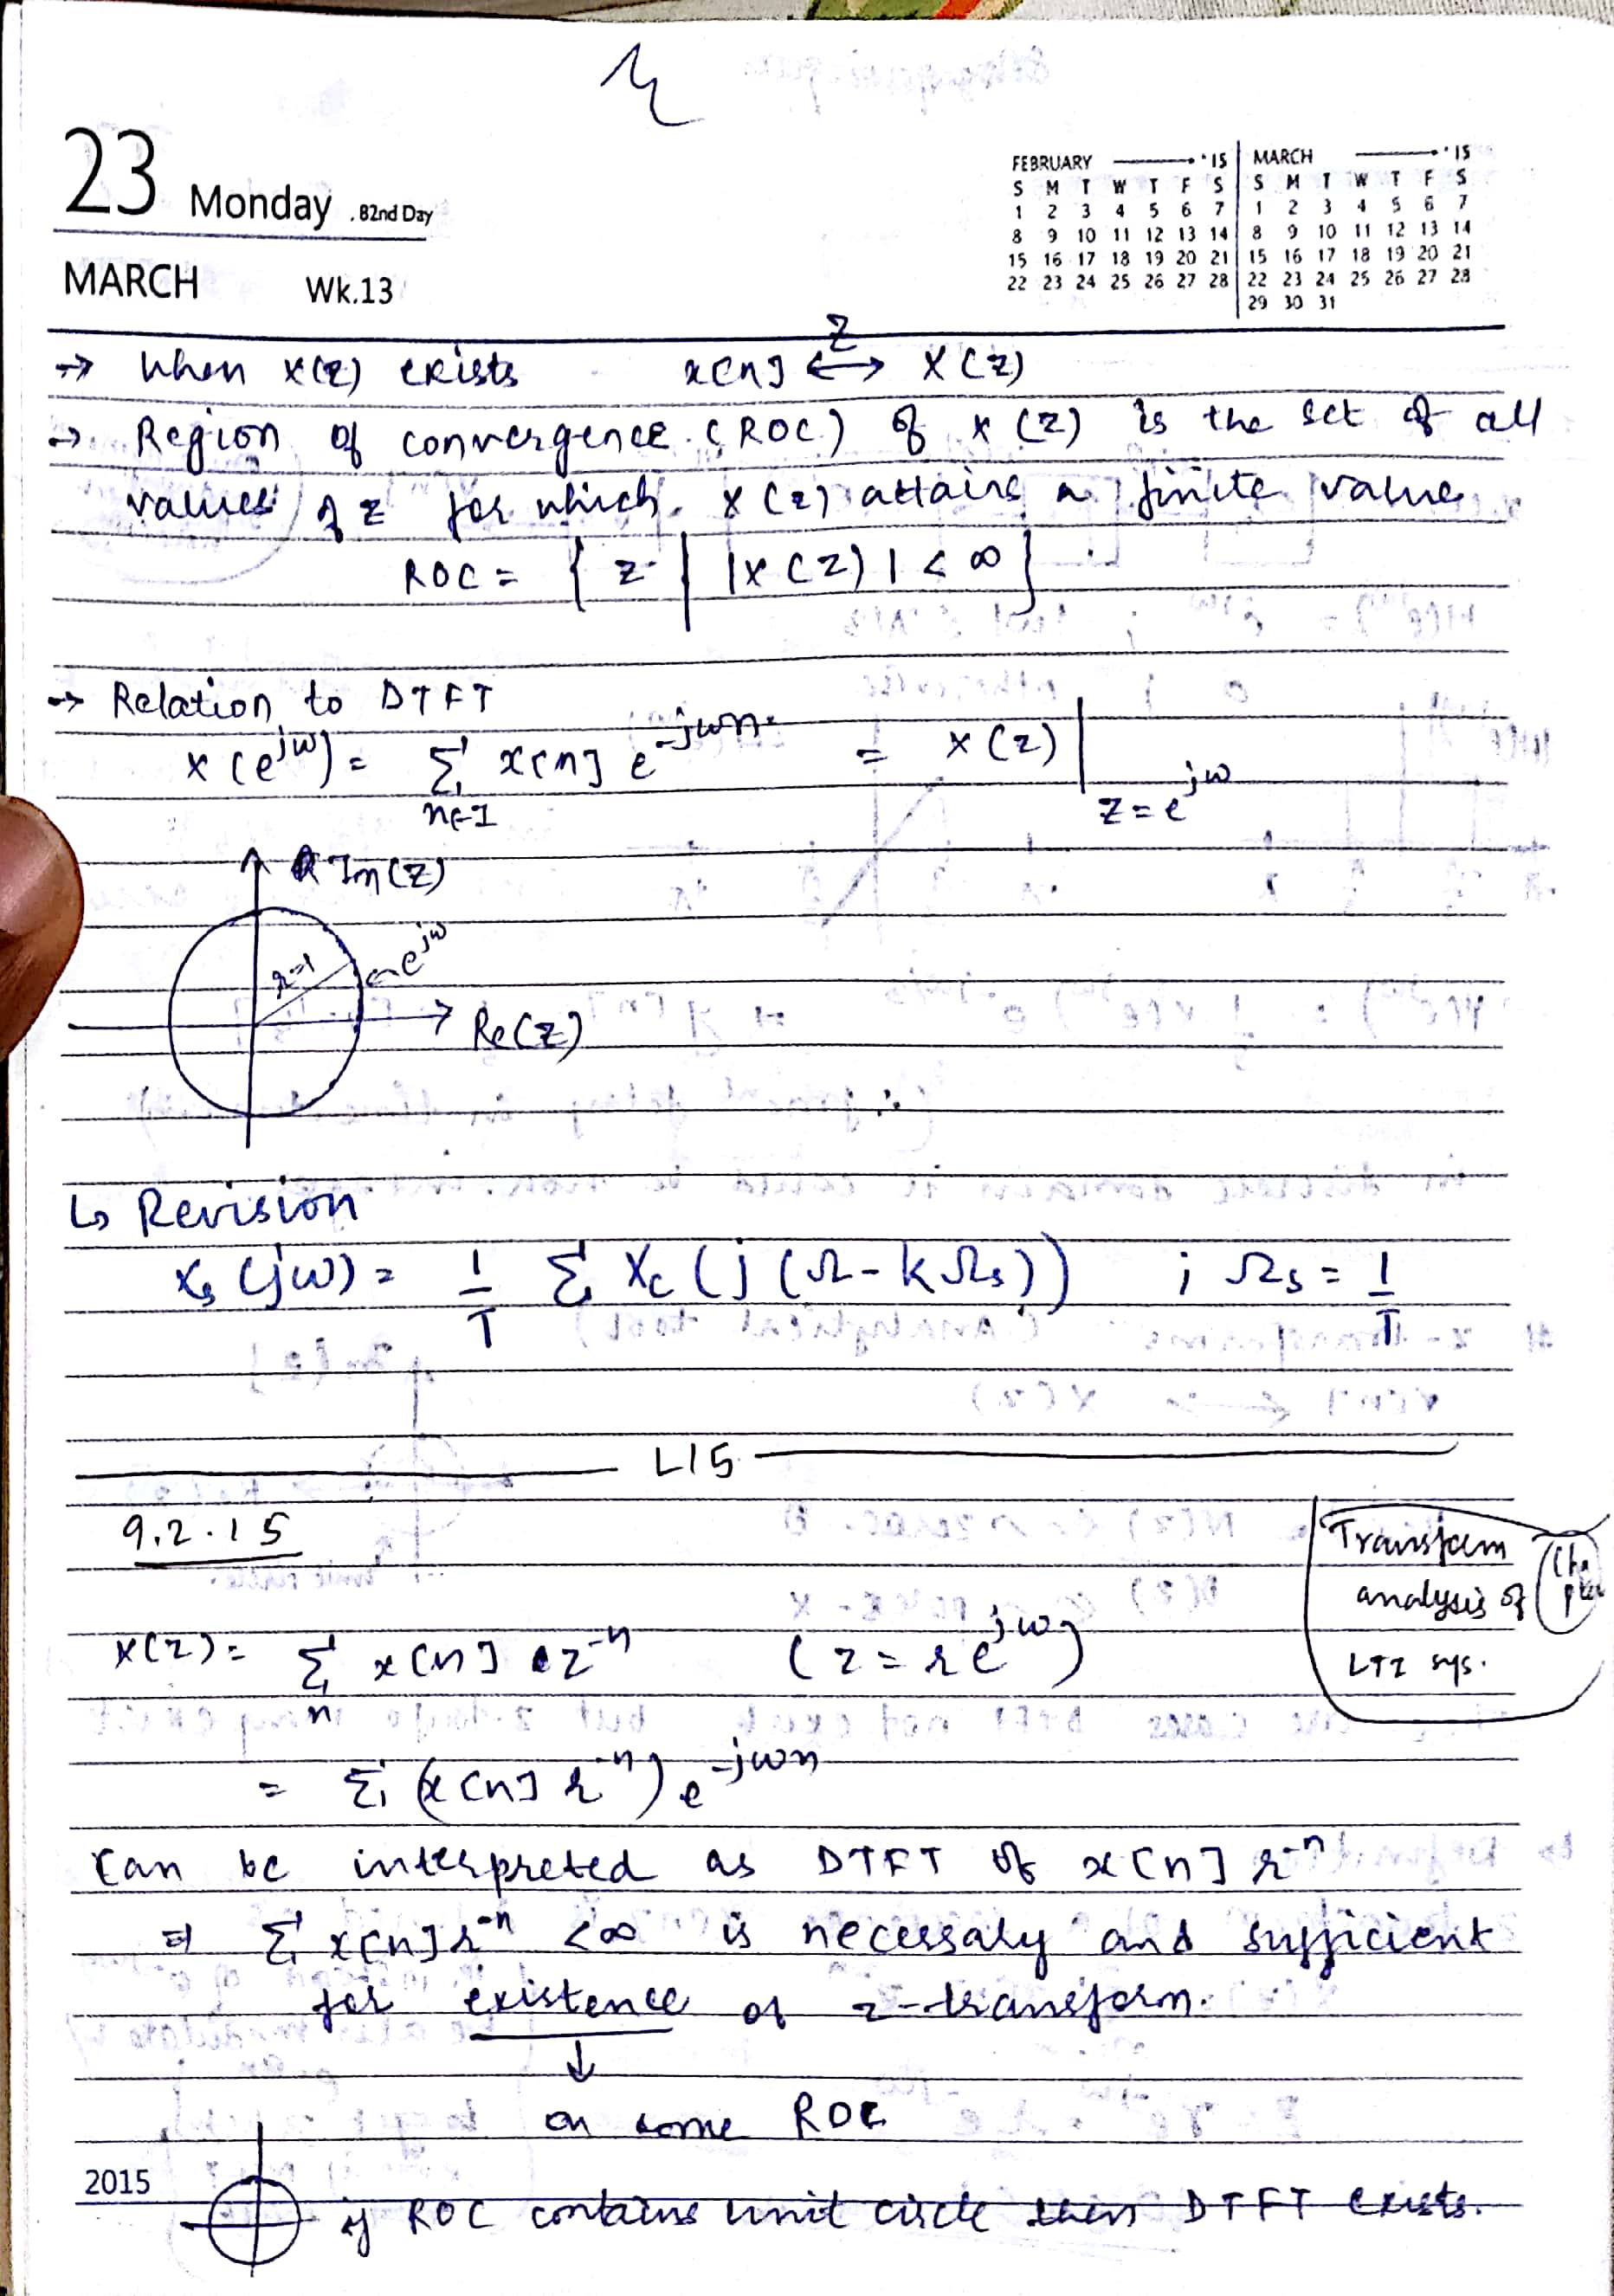 23 Monday . 82nd Day
MARCH Wk.13
FEBRUARY '15
S M T W T F S
1 2 3 4 5 6 7
8 9 10 11 12 13 14
15 16 17 18 19 20 21
22 23 24 25 26 27 28
MARCH '15
S M T W T F S
1 2 3 4 5 6 7
8 9 10 11 12 13 14
15 16 17 18 19 20 21
22 23 24 25 26 27 28
29 30 31
→ When X(z) exists x[n] ⟷ᶻ X(z)
→ Region of convergence (ROC) of X(z) is the set of all
values of z for which X(z) attains a finite value
ROC = { z | |X(z)| < ∞ }
→ Relation to DTFT
X(e^{jω}) = Σ_{n∈I} x[n] e^{-jωn} = X(z)|_{z=e^{jω}}
Im(z)
r=1
e^{jω}
Re(z)
↳ Revision
X_s(jω) = 1/T Σ X_c(j(Ω-kΩ_s)) ; Ω_s = 1/T
L15
9.2.15
Transform
analysis of
LTI sys.
X(z) = Σ_n x[n] z^{-n} (z = re^{jω})
= Σ (x[n] r^{-n}) e^{-jωn}
Can be interpreted as DTFT of x[n] r^{-n}
⇒ Σ x[n] r^{-n} < ∞ is necessary and sufficient
for existence of z-transform.
↓
on some ROC
2015
if ROC contains unit circle then DTFT exists.